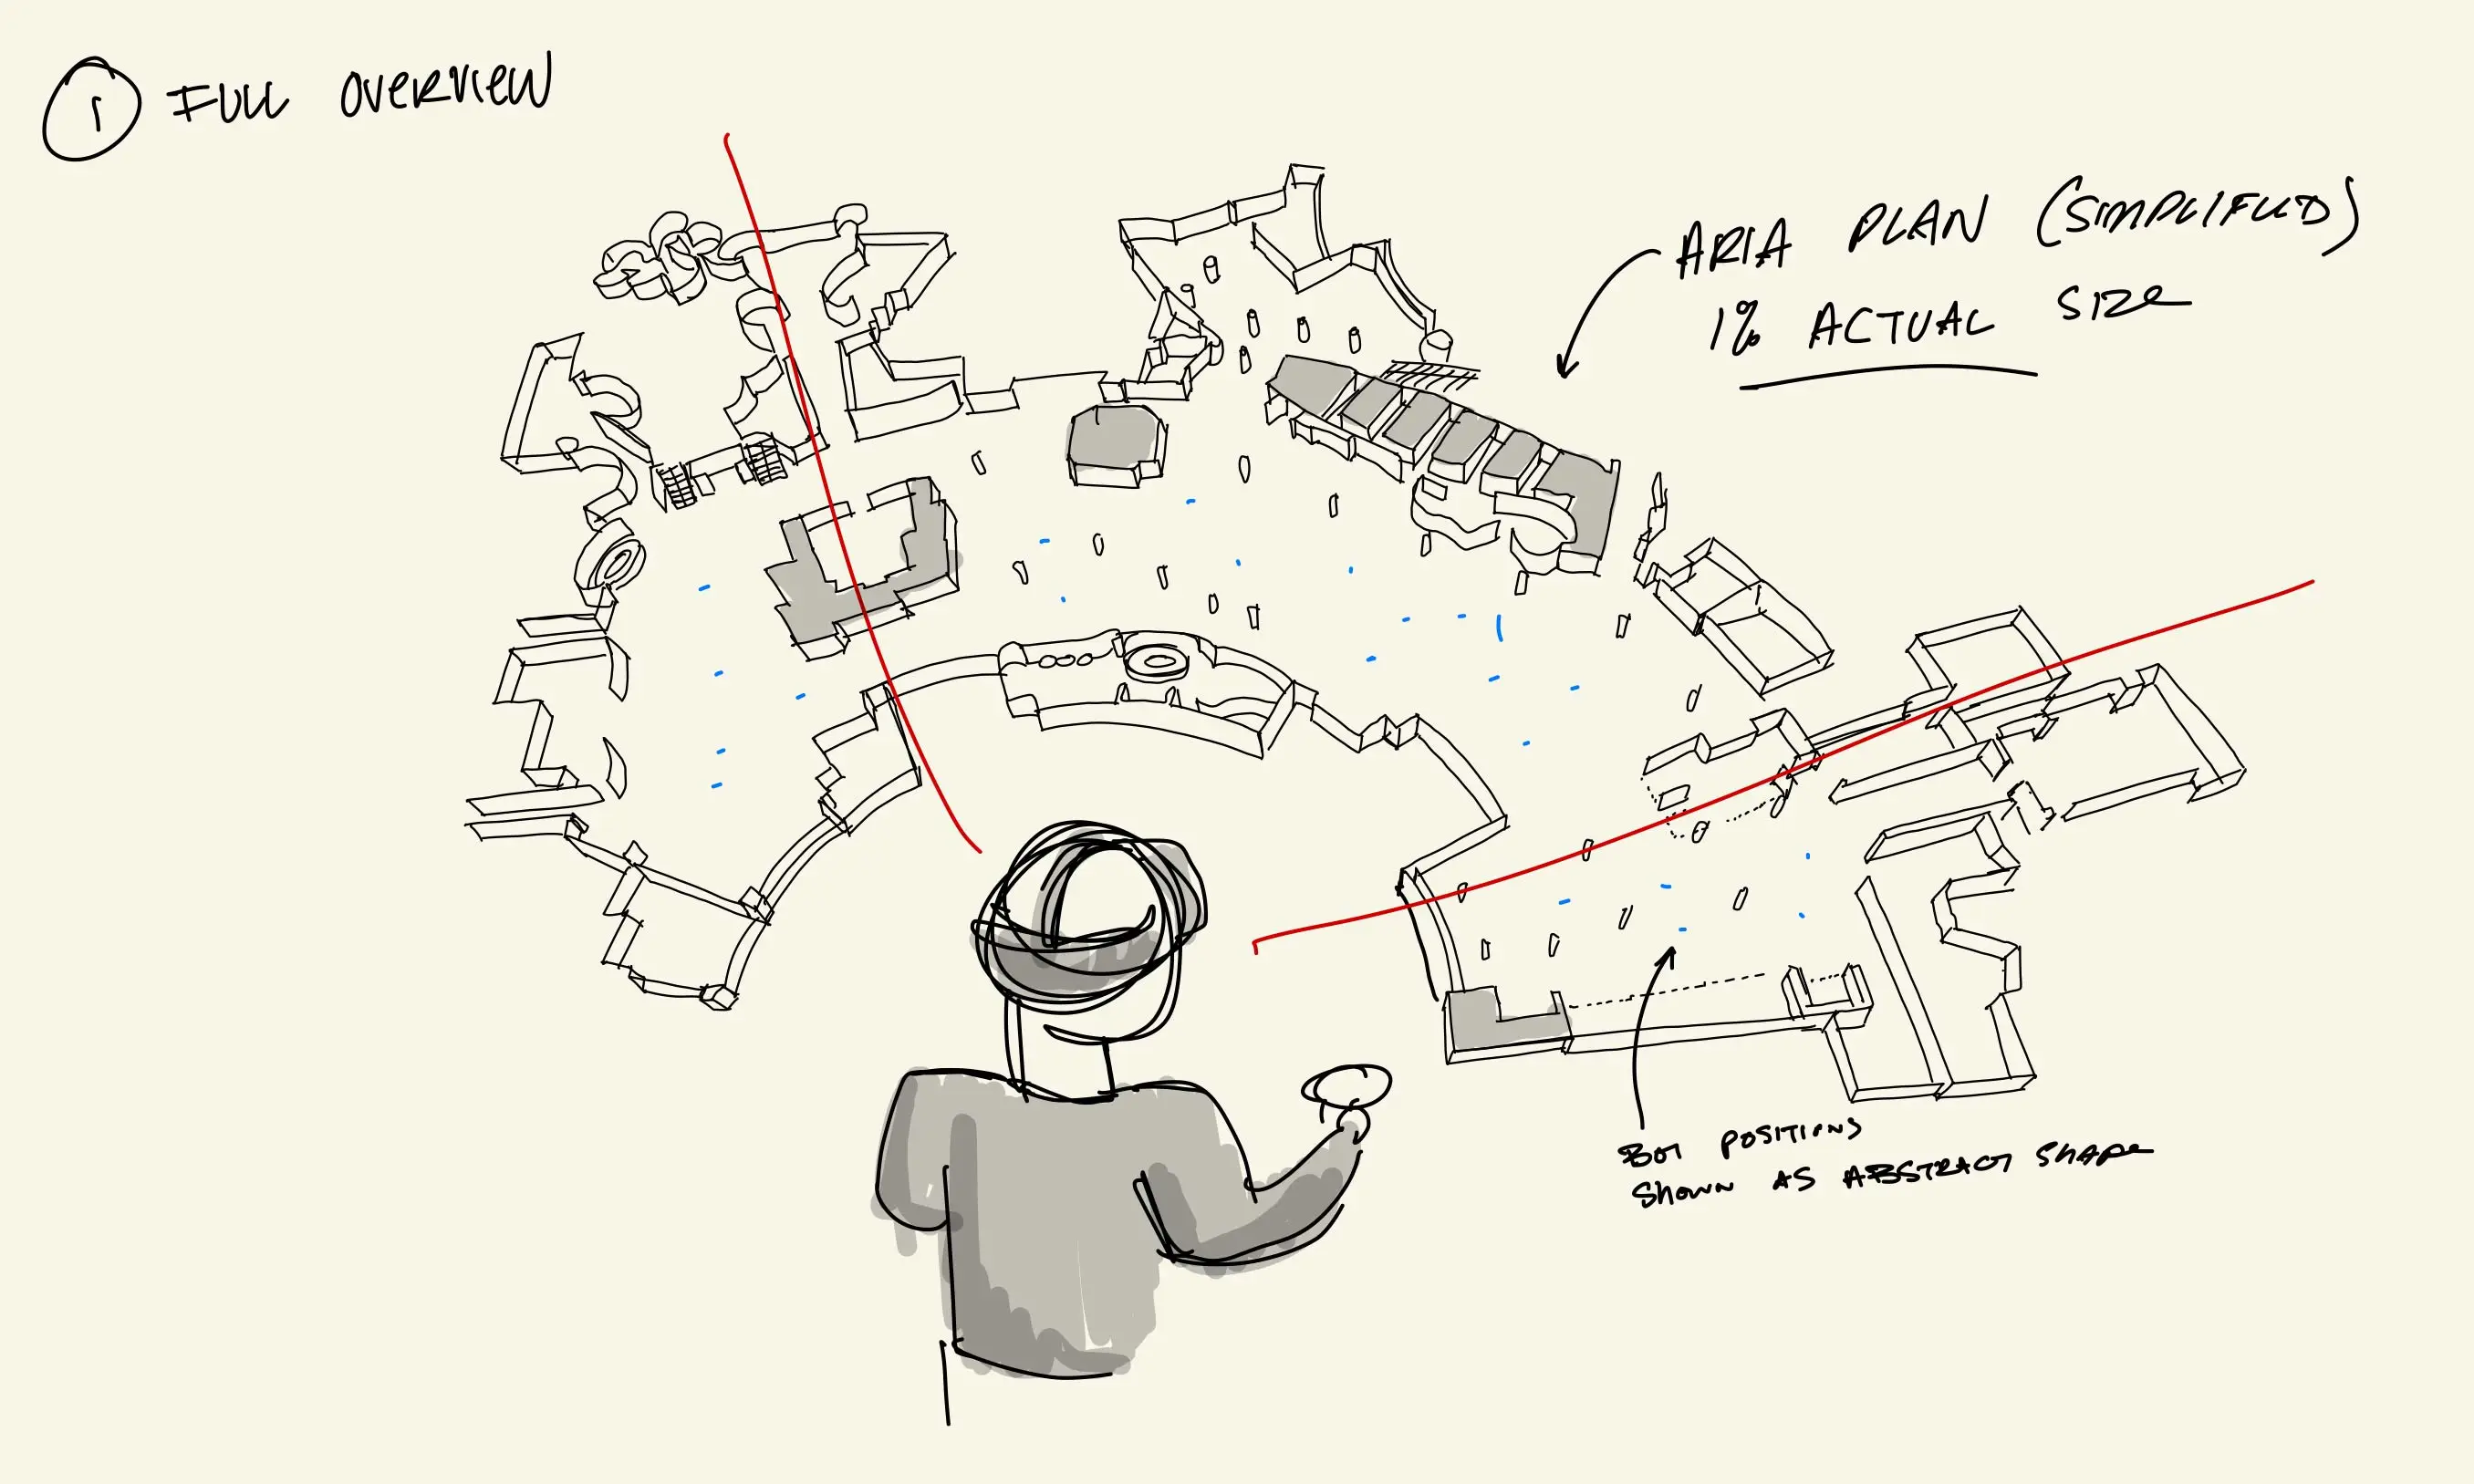 1 FULL OVERVIEW
ARIA PLAN (SIMPLIFIED)
1% ACTUAL SIZE
BOT POSITIONS
SHOWN AS ABSTRACT SHAPE